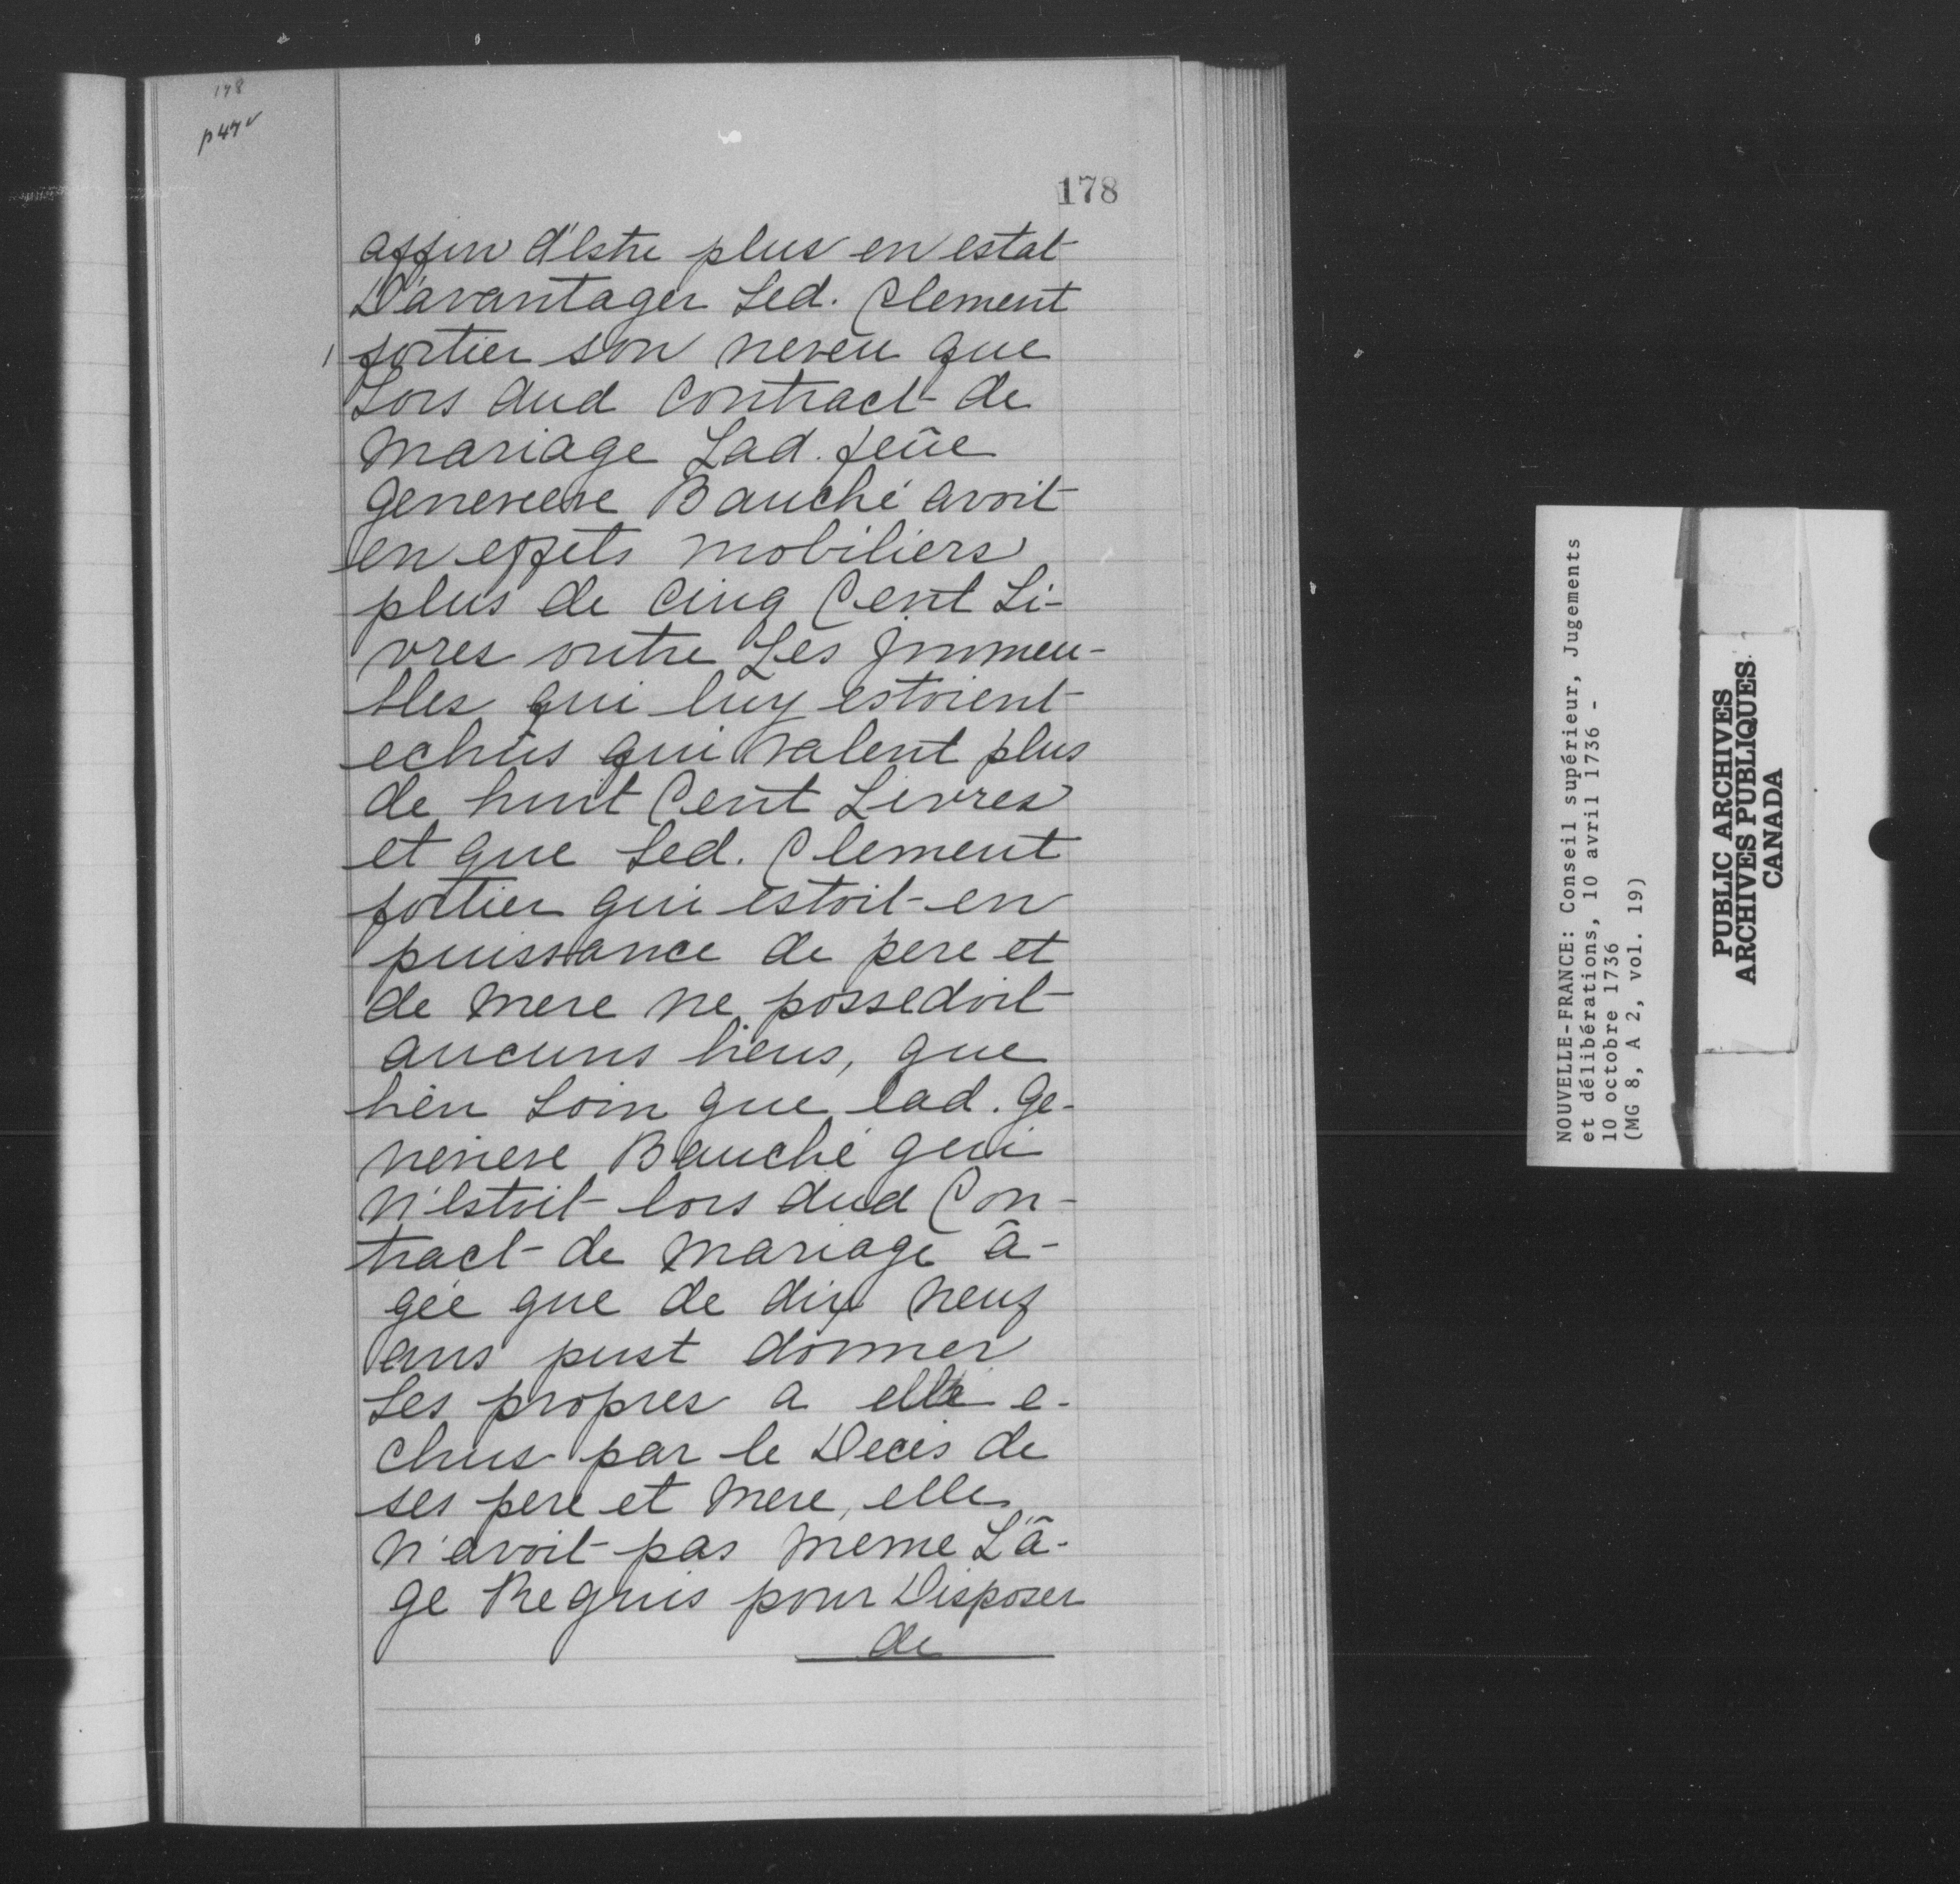 178
p47v
178
affin d'Estre plus en estat
D'avantager Led. Clement
fortier son neveu que
Lors dud Contract de
mariage Lad. feüe
genevieve Bauché avoit
en effets mobiliers
plus de Cinq Cent Li-
vres outre Les Jmmeu-
bles qui luy estoient
echûs qui valent plus
de huit Cent Livres
et que Led. Clement
fortier qui estoit en
puissance de pere et
de mere ne possedoit
aucuns biens, que
bien Loin que lad. Ge-
nevieve Bauché qui
n'estoit lors dud Con-
tract de mariage â-
gée que de dix neuf
ans pust donner
Les propres a elle e-
chus par le Decès de
ses pere et mere, elle
n'avoit pas meme L'â-
ge Requis pour Disposer
de
NOUVELLE-FRANCE: Conseil supérieur, Jugements
et délibérations, 10 avril 1736 -
10 octobre 1736
(MG 8, A 2, vol. 19)
PUBLIC ARCHIVES
ARCHIVES PUBLIQUES
CANADA